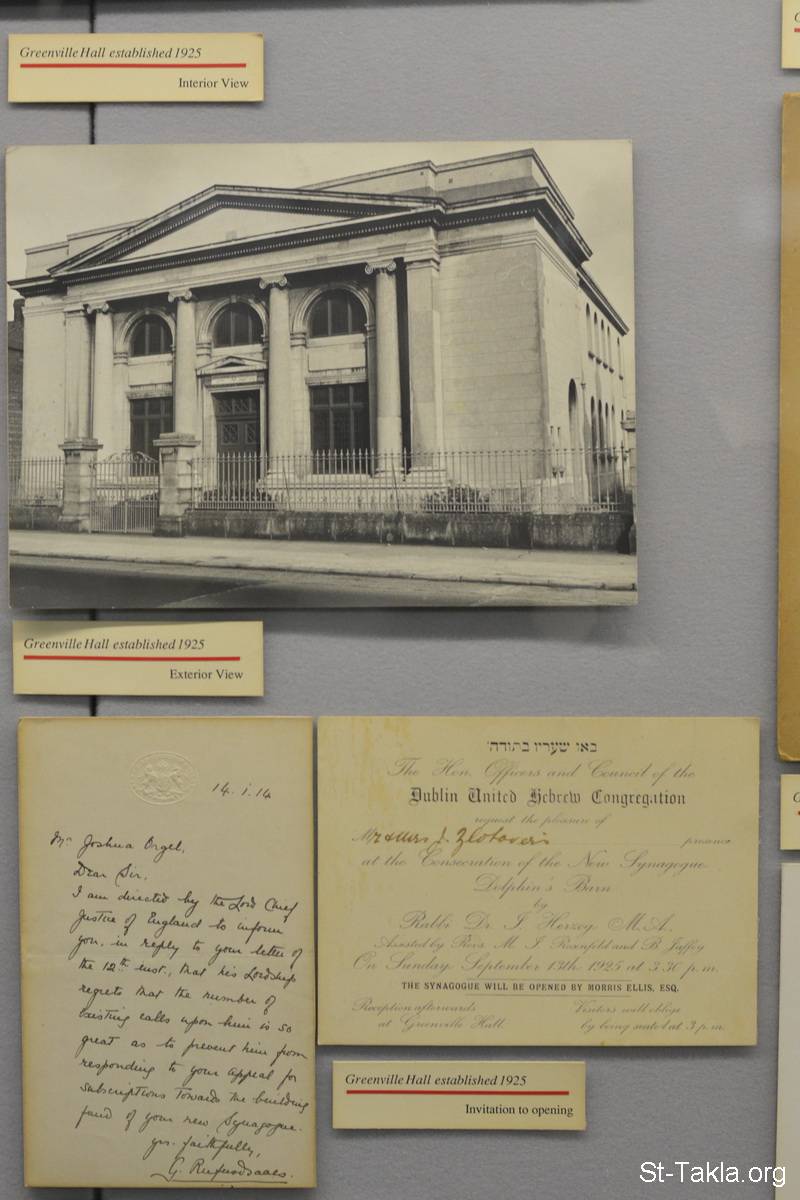 Greenville Hall established 1925
Interior View
Greenville Hall established 1925
Exterior View
14. 1. 14
Mr Joshua Orgel,
Dear Sir,
I am directed by the Lord Chief
Justice of England to inform
you, in reply to your letter of
the 12th inst., that his Lordship
regrets that the number of
existing calls upon him is so
great as to prevent him from
responding to your appeal for
subscriptions towards the building
fund of your new Synagogue.
yrs. faithfully,
G. Rufus Isaacs.
באו שעריו בתודה'
The Hon. Officers and Council of the
Dublin United Hebrew Congregation
request the pleasure of
Mr & Mrs J. Zlotover's presence
at the Consecration of the New Synagogue
Dolphin's Barn
by
Rabbi Dr. I. Herzog M.A.
Assisted by Revs. M. I. Rosenfeld and B. Jaffey
On Sunday September 13th 1925 at 3.30 p.m.
THE SYNAGOGUE WILL BE OPENED BY MORRIS ELLIS, ESQ.
Reception afterwards
at Greenville Hall.
Visitors will oblige
by being seated at 3 p.m.
Greenville Hall established 1925
Invitation to opening
St-Takla.org